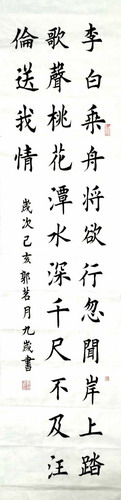 李白乘舟将欲行忽聞岸上踏
歌聲桃花潭水深千尺不及汪
倫送我情
歲次己亥郭茗月九歲書